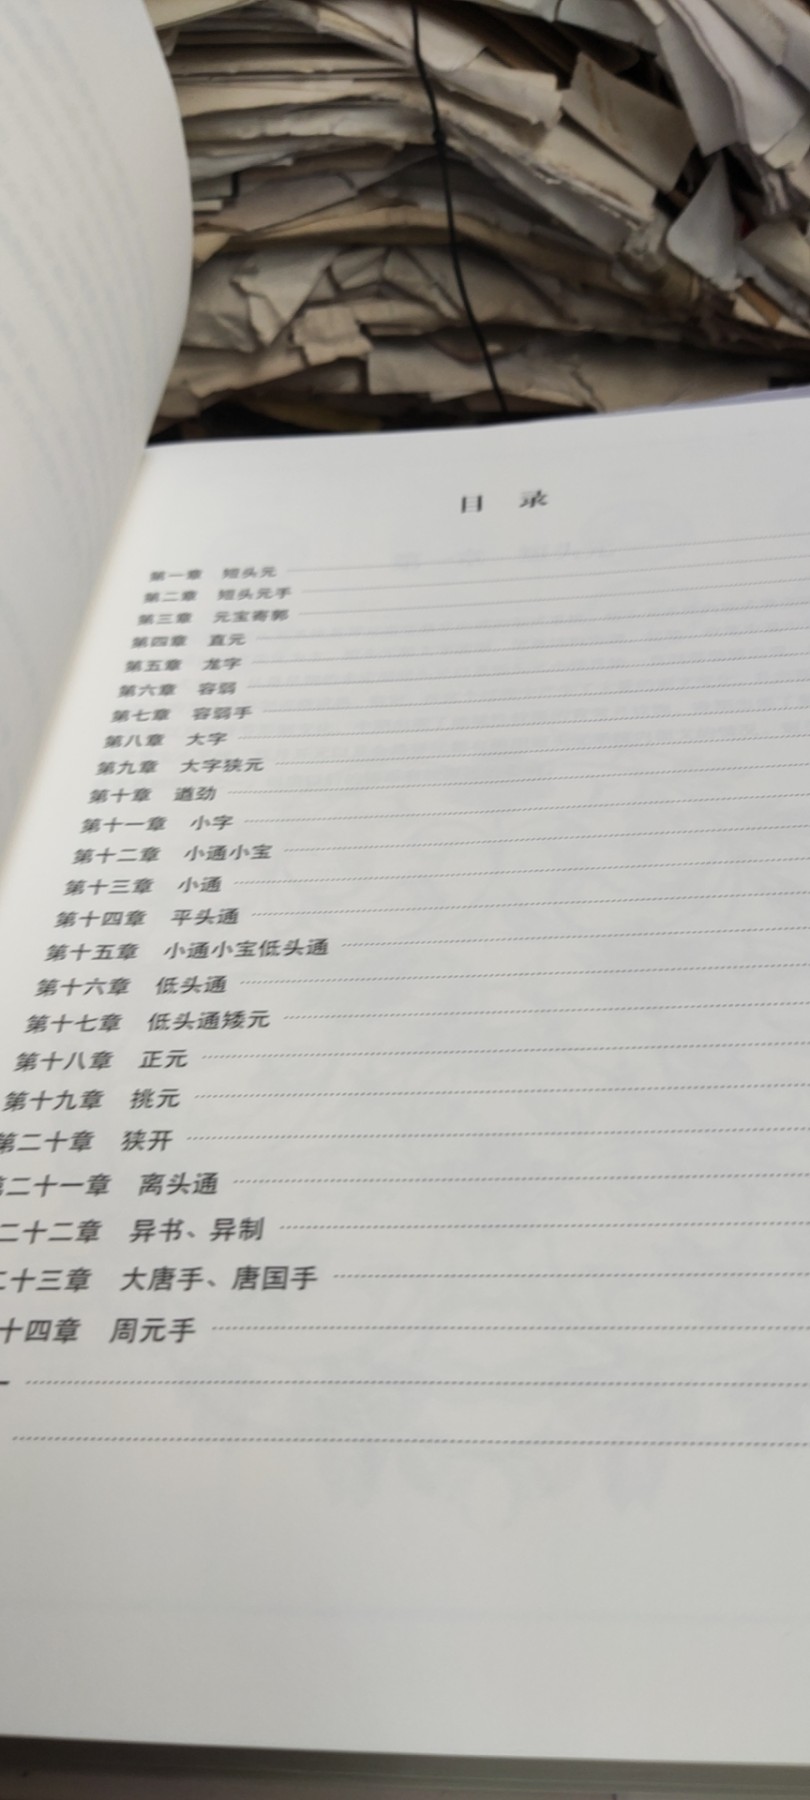 目 录
第一章 短头元
第二章 短头元手
第三章 元宝寄郭
第四章 直元
第五章 龙字
第六章 容弱
第七章 容弱手
第八章 大字
第九章 大字狭元
第十章 遒劲
第十一章 小字
第十二章 小通小宝
第十三章 小通
第十四章 平头通
第十五章 小通小宝低头通
第十六章 低头通
第十七章 低头通矮元
第十八章 正元
第十九章 挑元
第二十章 狭开
第二十一章 离头通
二十二章 异书、异制
二十三章 大唐手、唐国手
十四章 周元手